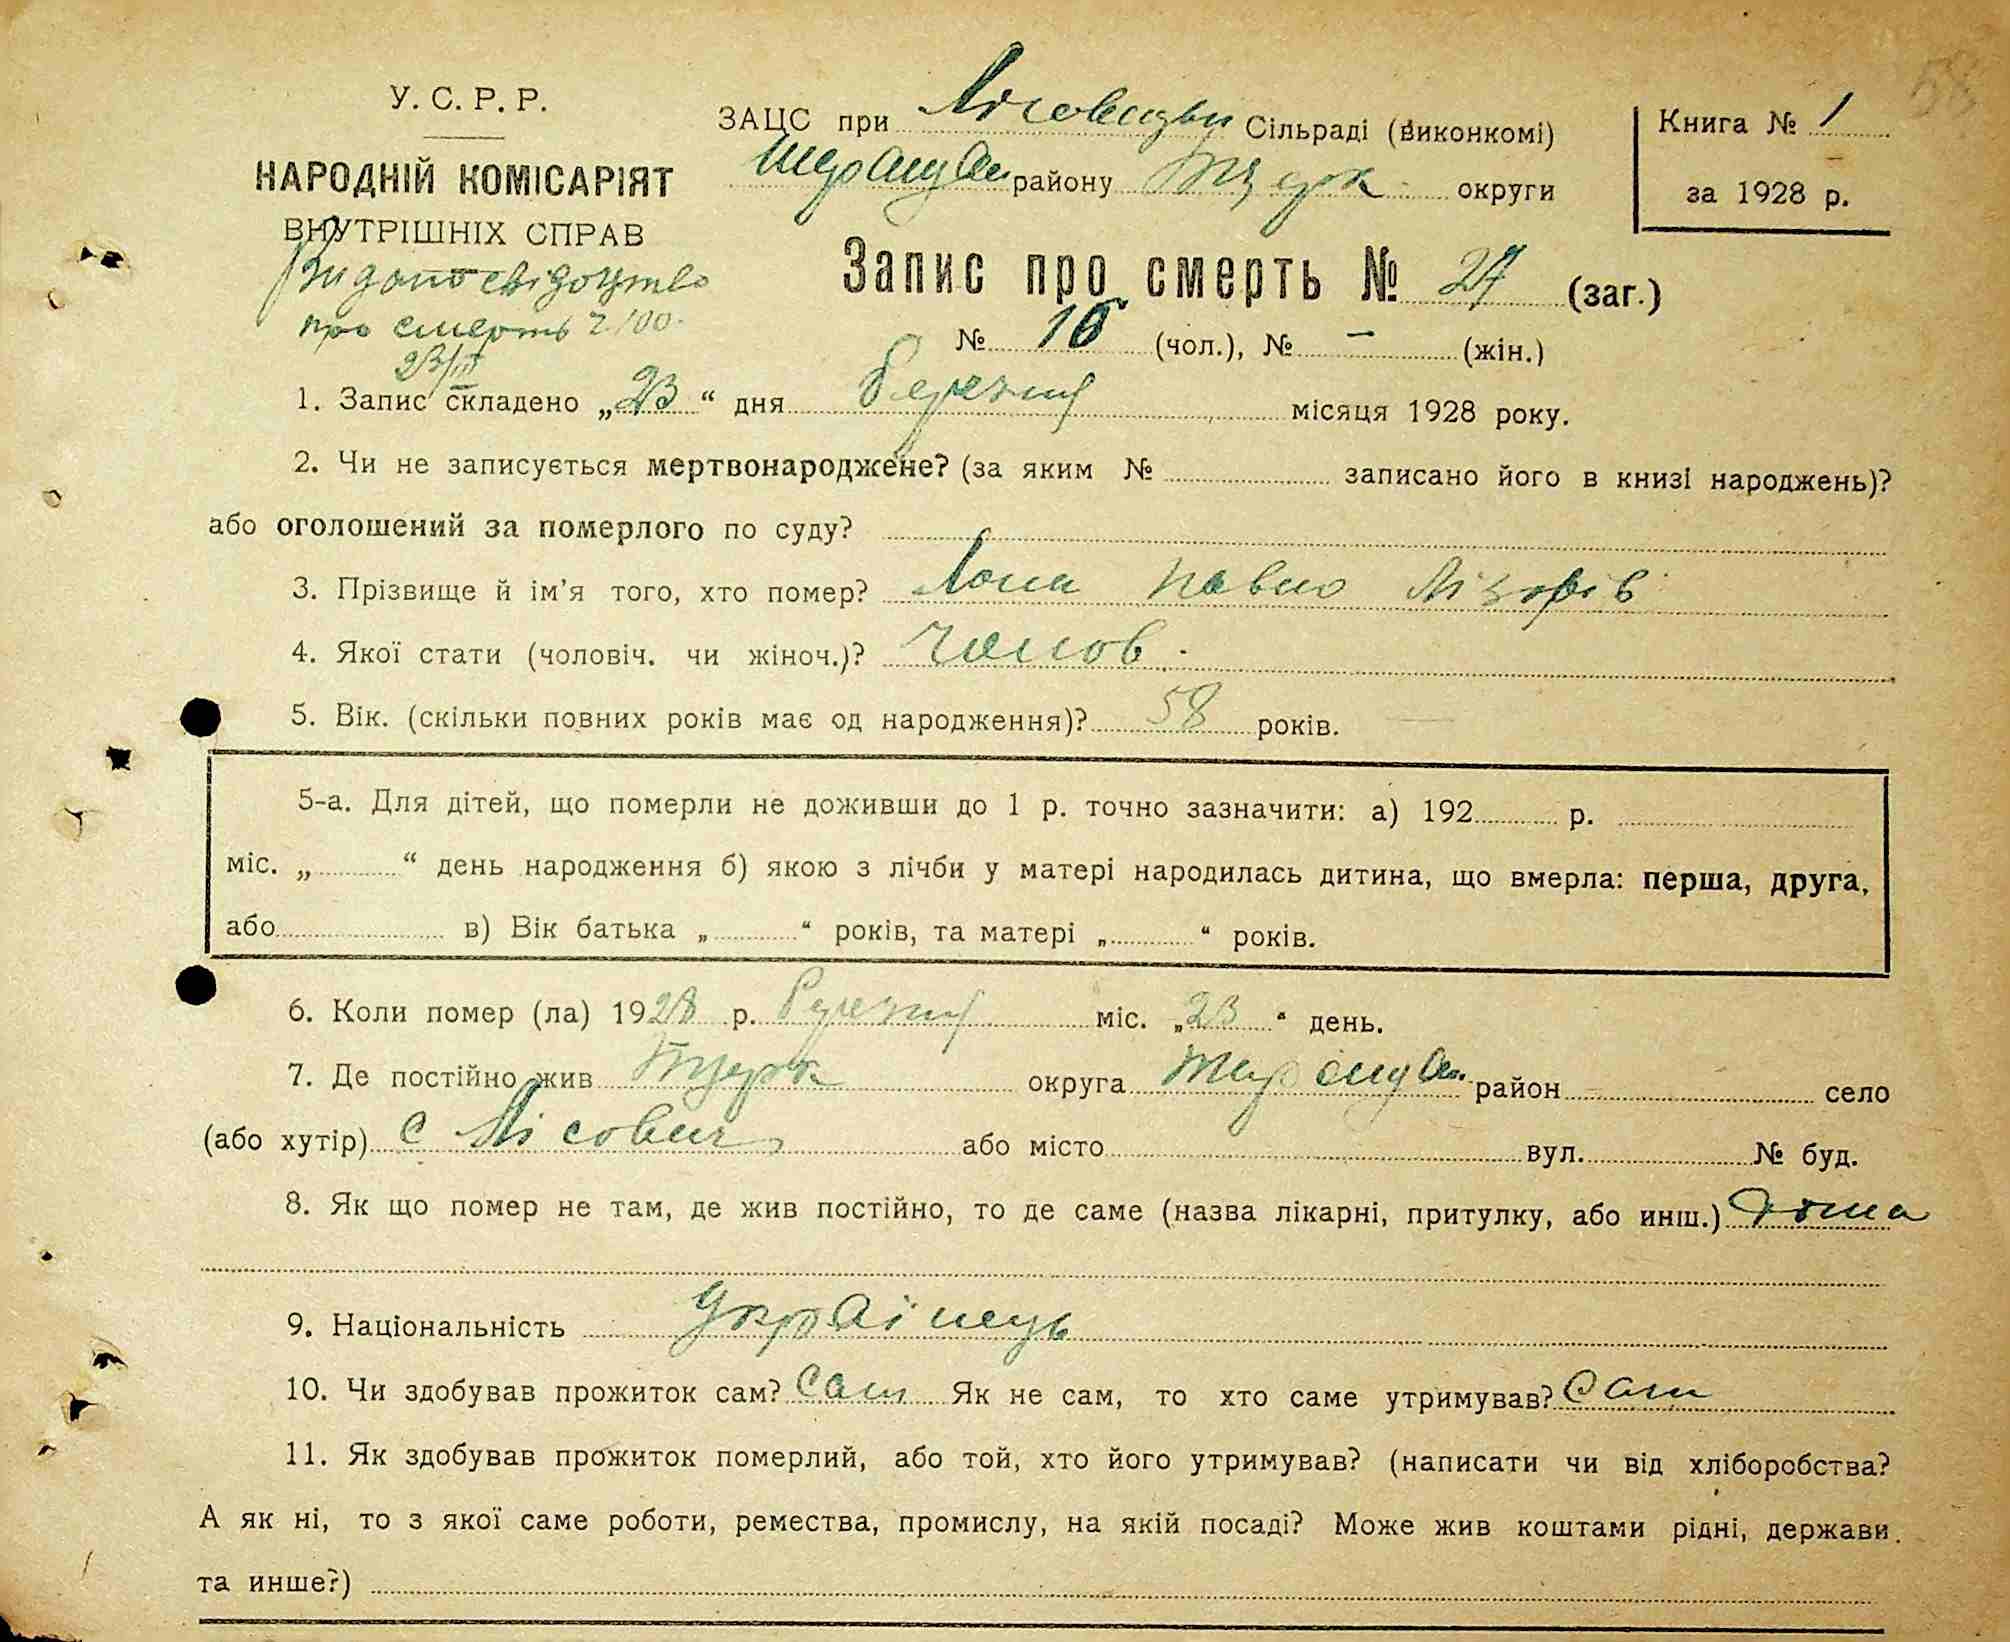 58
У. С. Р. Р.
НАРОДНІЙ КОМІСАРІЯТ
ВНУТРІШНІХ СПРАВ
Видано свідоцтво
про смерть ч 100.
23/III
ЗАЦС при Лісовицькій Сільраді (виконкомі)
району округи
Книга № 1
за 1928 р.
Запис про смерть № 27 (заг.)
№ 16 (чол.), № – (жін.)
1. Запис складено „23“ дня березня місяця 1928 року.
2. Чи не записується мертвонароджене? (за яким № записано його в книзі народжень)?
або оголошений за померлого по суду?
3. Прізвище й ім'я того, хто помер? Павло
4. Якої стати (чоловіч. чи жіноч.)? Чолов.
5. Вік. (скільки повних років має од народження)? 58 років.
5-а. Для дітей, що померли не доживши до 1 р. точно зазначити: а) 192 р.
міс. „ “ день народження б) якою з лічби у матері народилась дитина, що вмерла: перша, друга,
або в) Вік батька „ “ років, та матері „ “ років.
6. Коли помер (ла) 1928 р. березня міс. „23“ день.
7. Де постійно жив округа район село
(або хутір) с Лісович або місто вул. № буд.
8. Як що помер не там, де жив постійно, то де саме (назва лікарні, притулку, або инш.) дома
9. Національність Українець
10. Чи здобував прожиток сам? Сам Як не сам, то хто саме утримував? Сам
11. Як здобував прожиток померлий, або той, хто його утримував? (написати чи від хліборобства?
А як ні, то з якої саме роботи, ремества, промислу, на якій посаді? Може жив коштами рідні, держави.
та инше?)